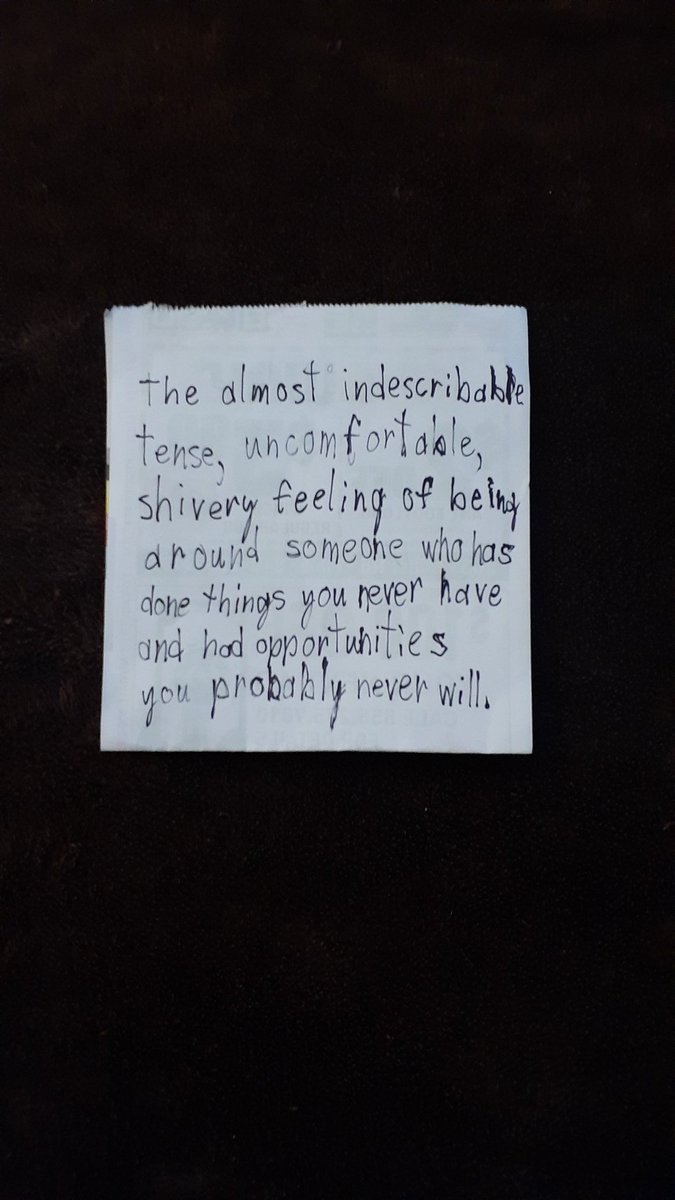 The almost indescribable
tense, uncomfortable,
shivery feeling of being
around someone who has
done things you never have
and had opportunities
you probably never will.